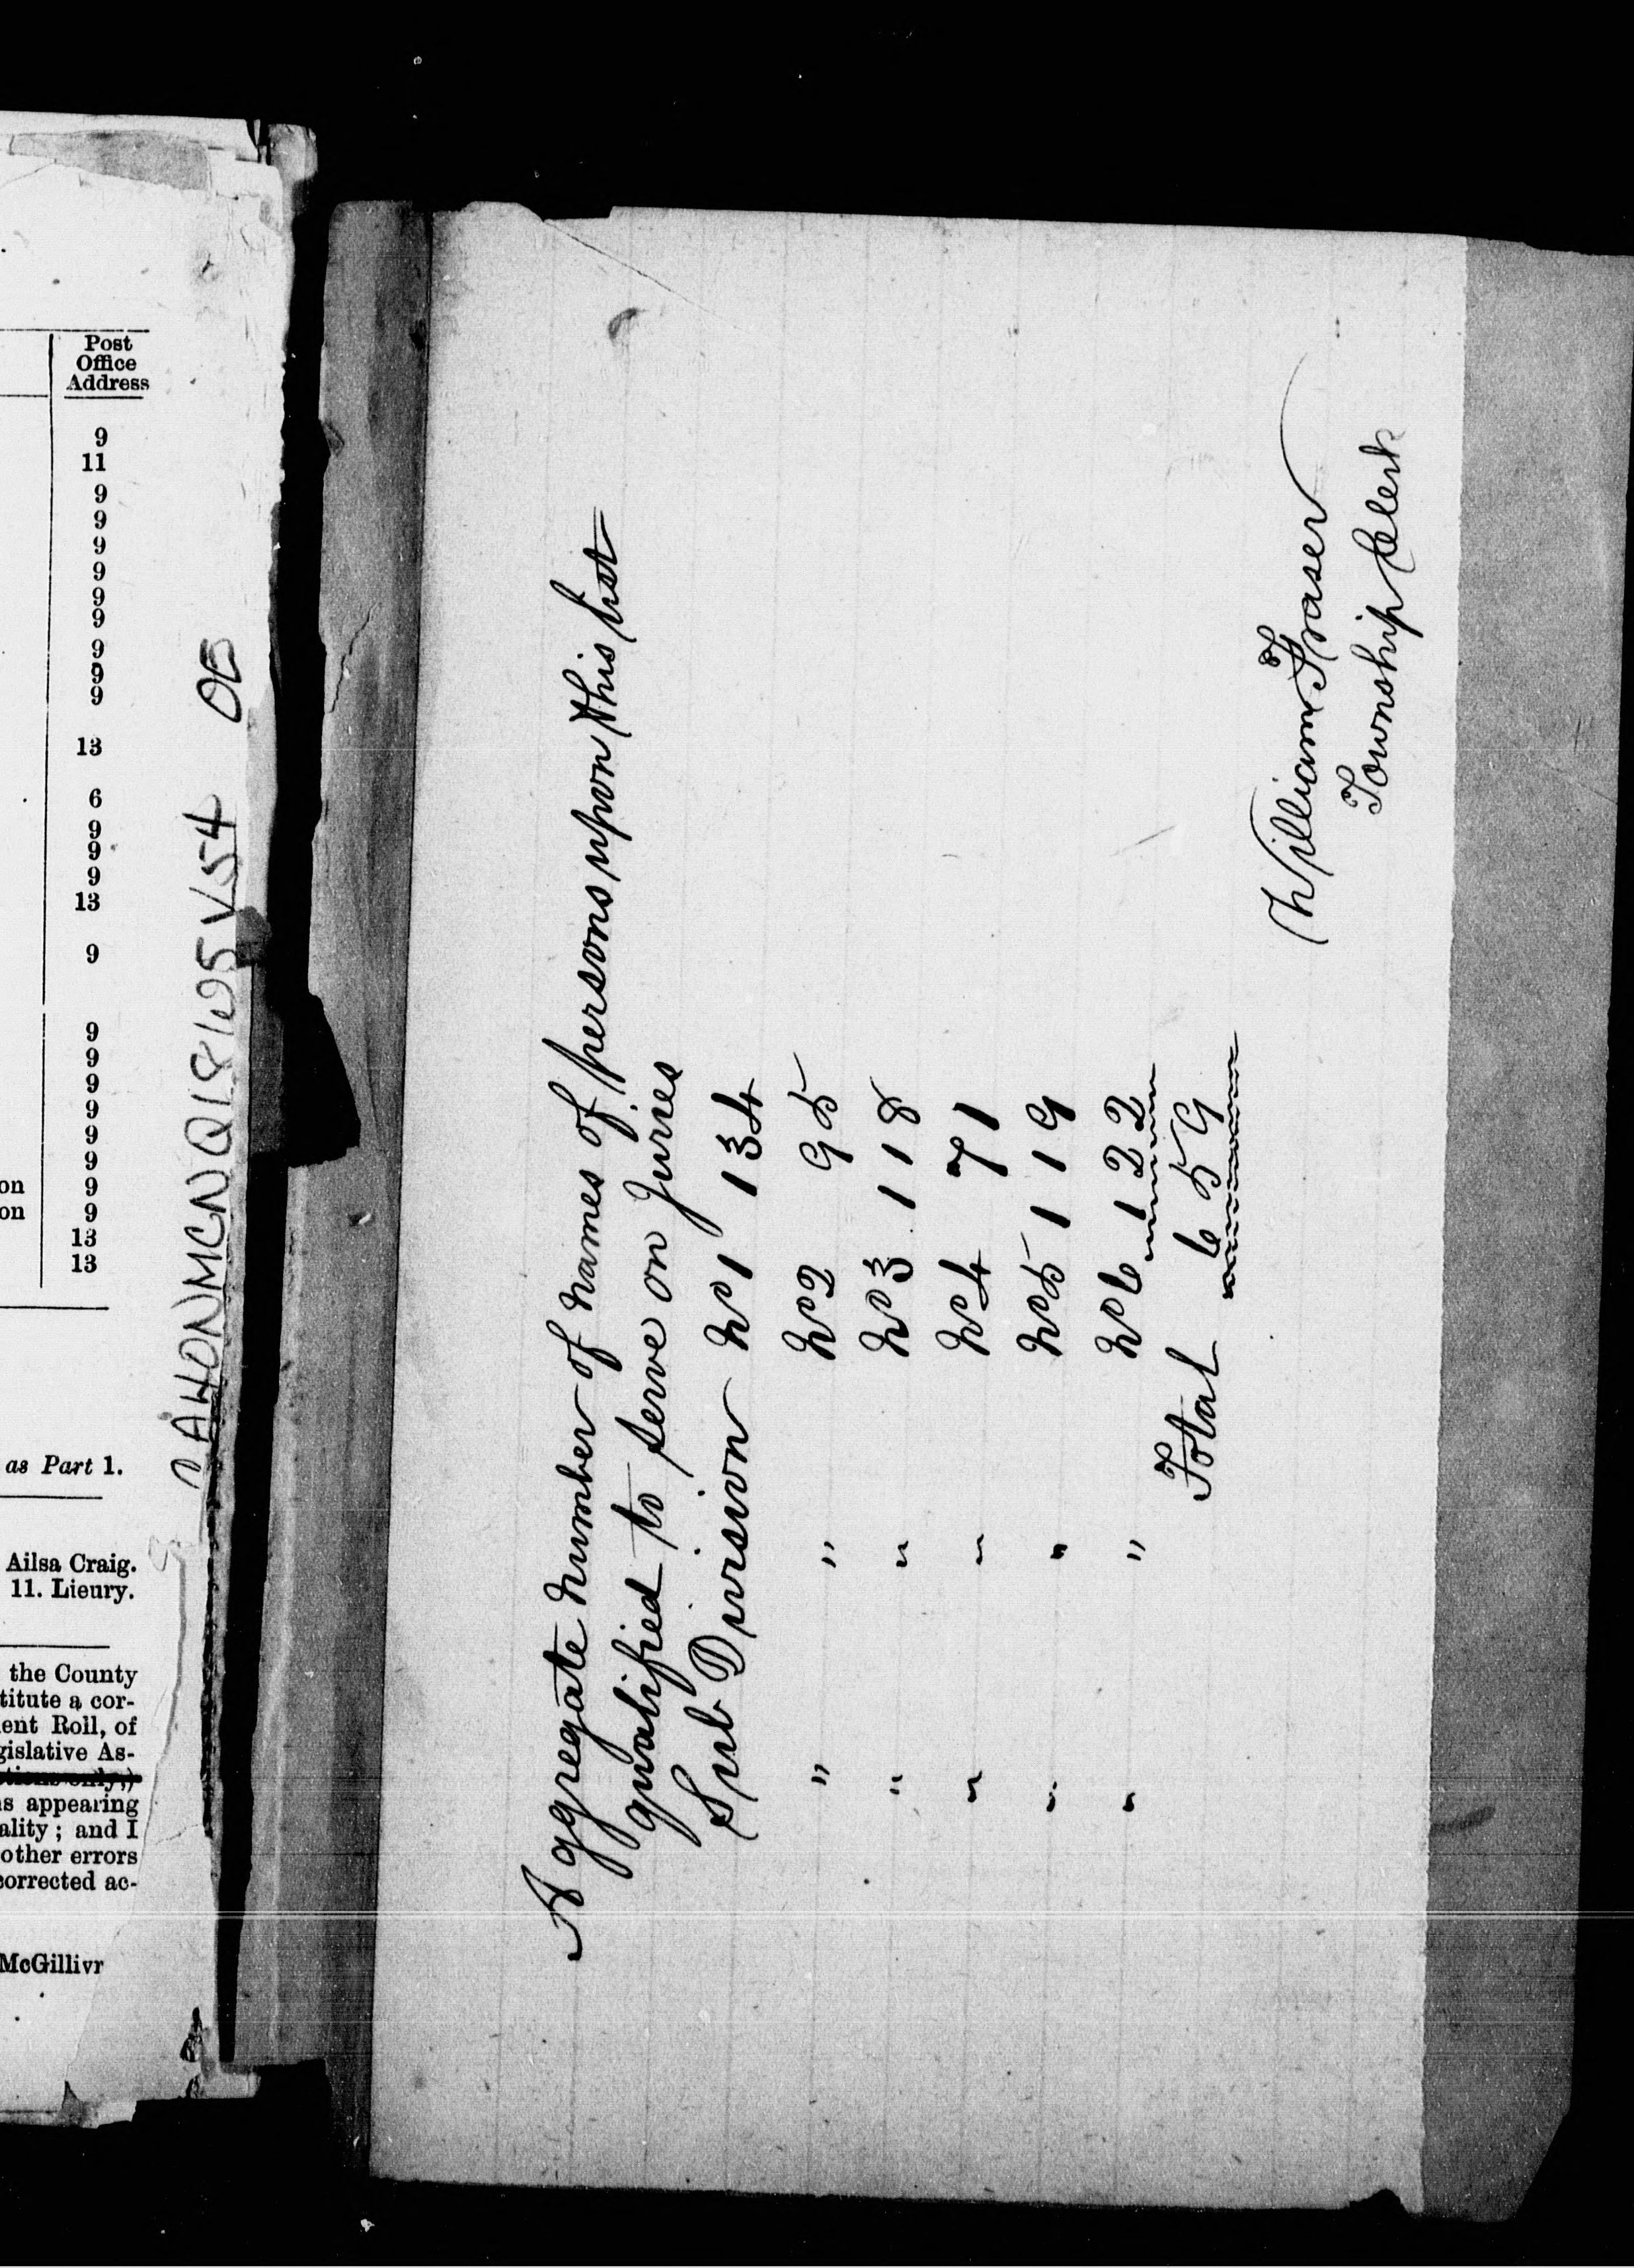 Post
Office
Address
9
11
9
9
9
9
9
9
9
9
9
13
6
9
9
9
13
9
9
9
9
9
9
9
on 9
on 9
13
13
as Part 1.
Ailsa Craig.
11. Lieury.
the County
titute a cor-
ent Roll, of
gislative As-
s appearing
ality; and I
other errors
corrected ac-
McGillivr
Aggregate number of names of persons upon this list
qualified to serve on Juries
Sub Division No 1 134
" " No 2 95
" " No 3 118
" " No 4 71
" " No 5 119
" " No 6 122
Total 659
William Fraser
Township Clerk